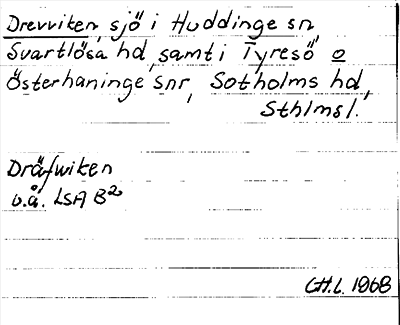 Drevviken, sjö i Huddinge sn,
Svartlösa hd, samt i Tyresö o
Österhaninge snr, Sotholms hd,
Sthlms l.
Dräfwiken
u.å. LSA B2
CH.L. 1968